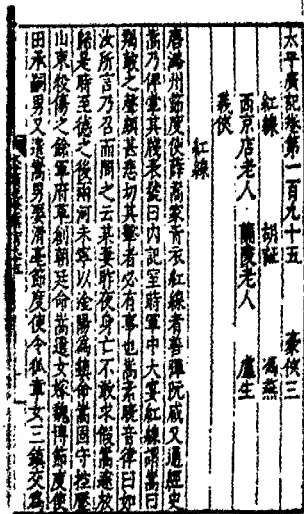 太平廣記卷第一百九十五　豪俠三
紅線　胡証　馮燕
西京店老人　蘭陵老人　盧生
義俠
紅線
唐潞州節度使薛嵩家青衣紅線者善彈阮咸又通經史
嵩乃俾掌其牋表號曰內記室時軍中大宴紅線謂嵩曰
羯鼓之聲頗甚悲切其擊者必有事也嵩素曉音律曰如
汝所言乃召而問之云某妻昨夜身亡不敢求假嵩遽放
歸是時至德之後兩河未寧以淦陽為鎮命嵩固守控壓
山東殺傷之餘軍府草創朝廷命嵩遣女嫁魏博節度使
田承嗣男又遣嵩男娶滑亳節度使令狐章女三鎮交為